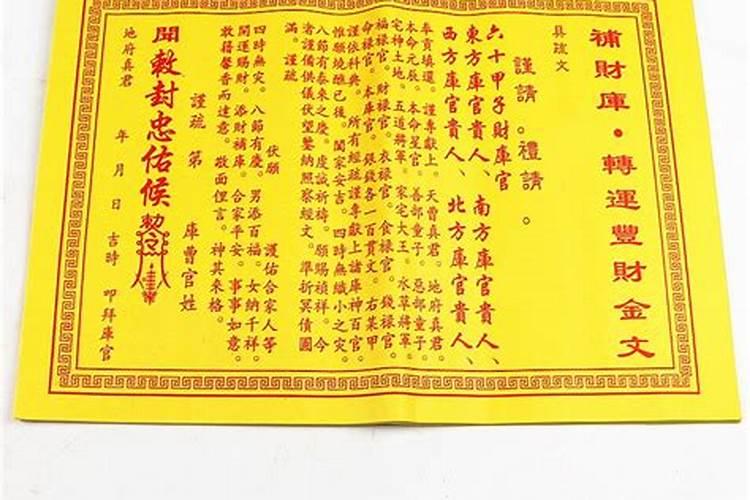 補財庫・轉運豐財金文
具疏文
謹請。禮請。
六十甲子財庫官
東方庫官貴人、南方庫官貴人、
西方庫官貴人、北方庫官貴人、
奉貢填還。謹專獻上。天曹真君。地府真君。
本命元辰。本命星官。善部童子。惡部童子。
宅神土地。五道將軍。家宅大王。水草將軍。
福祿官。財祿官。衣祿官。食祿官。錢祿官。
命祿官。本庫官。銀錢各一百貫文。右某甲
謹依科典。所有經疏謹專獻上諸庫神百官。
惟願燒醮已後。闔家安吉。四時無纖小之灾。
八節有泰來之慶。虔誠祈禱。願賜禎祥。今
者謹備供儀伏望鑒納照察經文。準折冥債圓
滿。謹疏
伏願　護佑合家人等
四時無灾。八節有慶。男添百福。女納千祥。
開運賜財。添財補庫。合家平安。事事如意。
敢藉馨香而達意。敬面俚言。神其來格。
謹疏　第　庫曹官姓
聞敕封忠佑候
地府真君　年　月　日　吉時　叩拜庫官